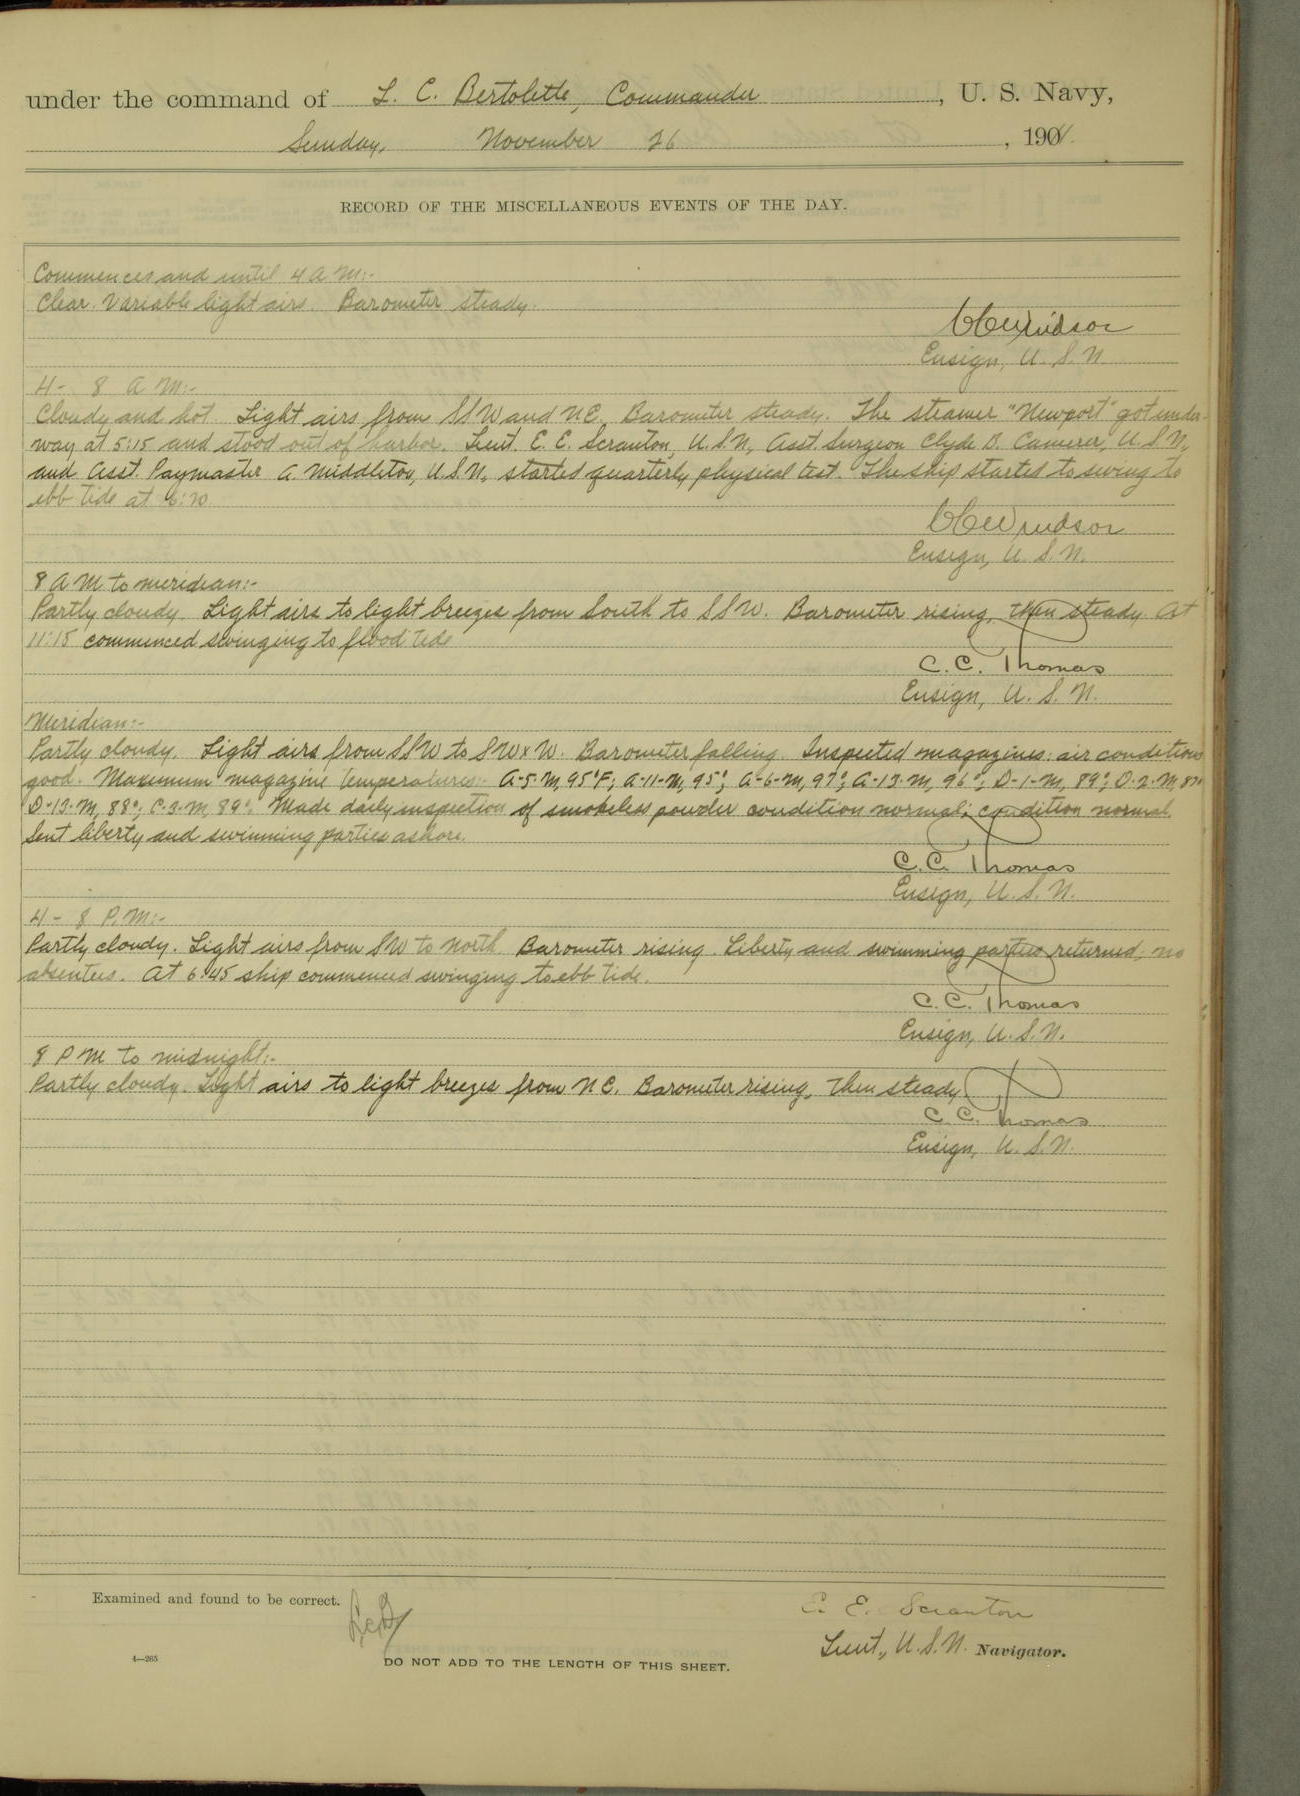 under the command of L. C. Bertolette, Commander, U. S. Navy,
Sunday, November 26, 1911.
RECORD OF THE MISCELLANEOUS EVENTS OF THE DAY.
Commences and until 4 A M:-
Clear. Variable light airs. Barometer steady.
Windsor
Ensign, U. S. N.
4 - 8 A M:-
Cloudy and hot. Light airs from SSW and NE. Barometer steady. The steamer "Newport" got under-
way at 5:15 and stood out of harbor. Lieut. E. E. Scranton, U.S.N., Asst. Surgeon Clyde B. Camerer, U.S.N.,
and Asst. Paymaster A. Middleton, U.S.N., started quarterly physical test. The ship started to swing to
ebb tide at 6:20.
Windsor
Ensign, U. S. N.
8 A M to meridian:-
Partly cloudy. Light airs to light breezes from South to SSW. Barometer rising, then steady. At
11:15 commenced swinging to flood tide
C. C. Thomas
Ensign, U. S. N.
Meridian:-
Partly cloudy. Light airs from SSW to SWxW. Barometer falling. Inspected magazines: air conditions
good. Maximum magazine temperatures:- A-5-M, 95°F; A-11-M, 95°; A-6-M, 97°; A-13-M, 96°; D-1-M, 89°; D-2-M, 87°
D-13-M, 88°; C-3-M, 89°. Made daily inspection of smokeless powder condition normal; condition normal.
Sent liberty and swimming parties ashore.
C. C. Thomas
Ensign, U. S. N.
4 - 8 P. M:-
Partly cloudy. Light airs from SW to North. Barometer rising. Liberty and swimming parties returned; no
absentees. At 6:45 ship commenced swinging to ebb tide.
C. C. Thomas
Ensign, U. S. N.
8 P M to midnight:-
Partly cloudy. Light airs to light breezes from NE. Barometer rising, then steady
C. C. Thomas
Ensign, U. S. N.
Examined and found to be correct.
E. E. Scranton
Lieut., U. S. N. Navigator.
4—265
DO NOT ADD TO THE LENGTH OF THIS SHEET.